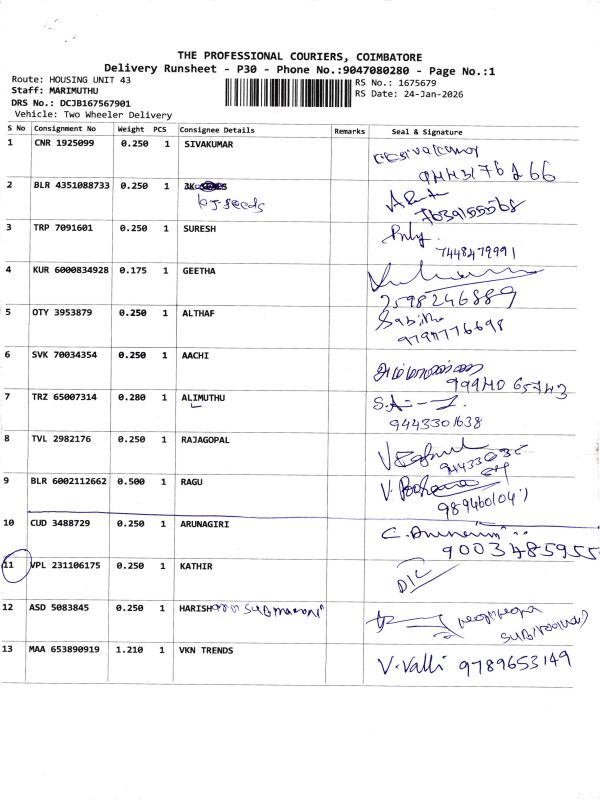 THE PROFESSIONAL COURIERS, COIMBATORE
Delivery Runsheet - P30 - Phone No.:9047080280 - Page No.:1
Route: HOUSING UNIT 43
RS No.: 1675679
Staff: MARIMUTHU
RS Date: 24-Jan-2026
DRS No.: DCJB167567901
Vehicle: Two Wheeler Delivery
S No Consignment No Weight PCS Consignee Details Remarks Seal & Signature
1 CNR 1925099 0.250 1 SIVAKUMAR
2 BLR 4351088733 0.250 1
seeds
7639155568
3 TRP 7091601 0.250 1 SURESH
7448479991
4 KUR 6000834928 0.175 1 GEETHA
2598246889
5 OTY 3953879 0.250 1 ALTHAF Sabitha
6 SVK 70034354 0.250 1 AACHI
99940 65743
7 TRZ 65007314 0.280 1 ALIMUTHU
9443301638
8 TVL 2982176 0.250 1 RAJAGOPAL
9 BLR 6002112662 0.500 1 RAGU
10 CUD 3488729 0.250 1 ARUNAGIRI
9003485955
11 VPL 231106175 0.250 1 KATHIR D/C
12 ASD 5083845 0.250 1 HARISH
13 MAA 653890919 1.210 1 VKN TRENDS V.Valli 9789653149